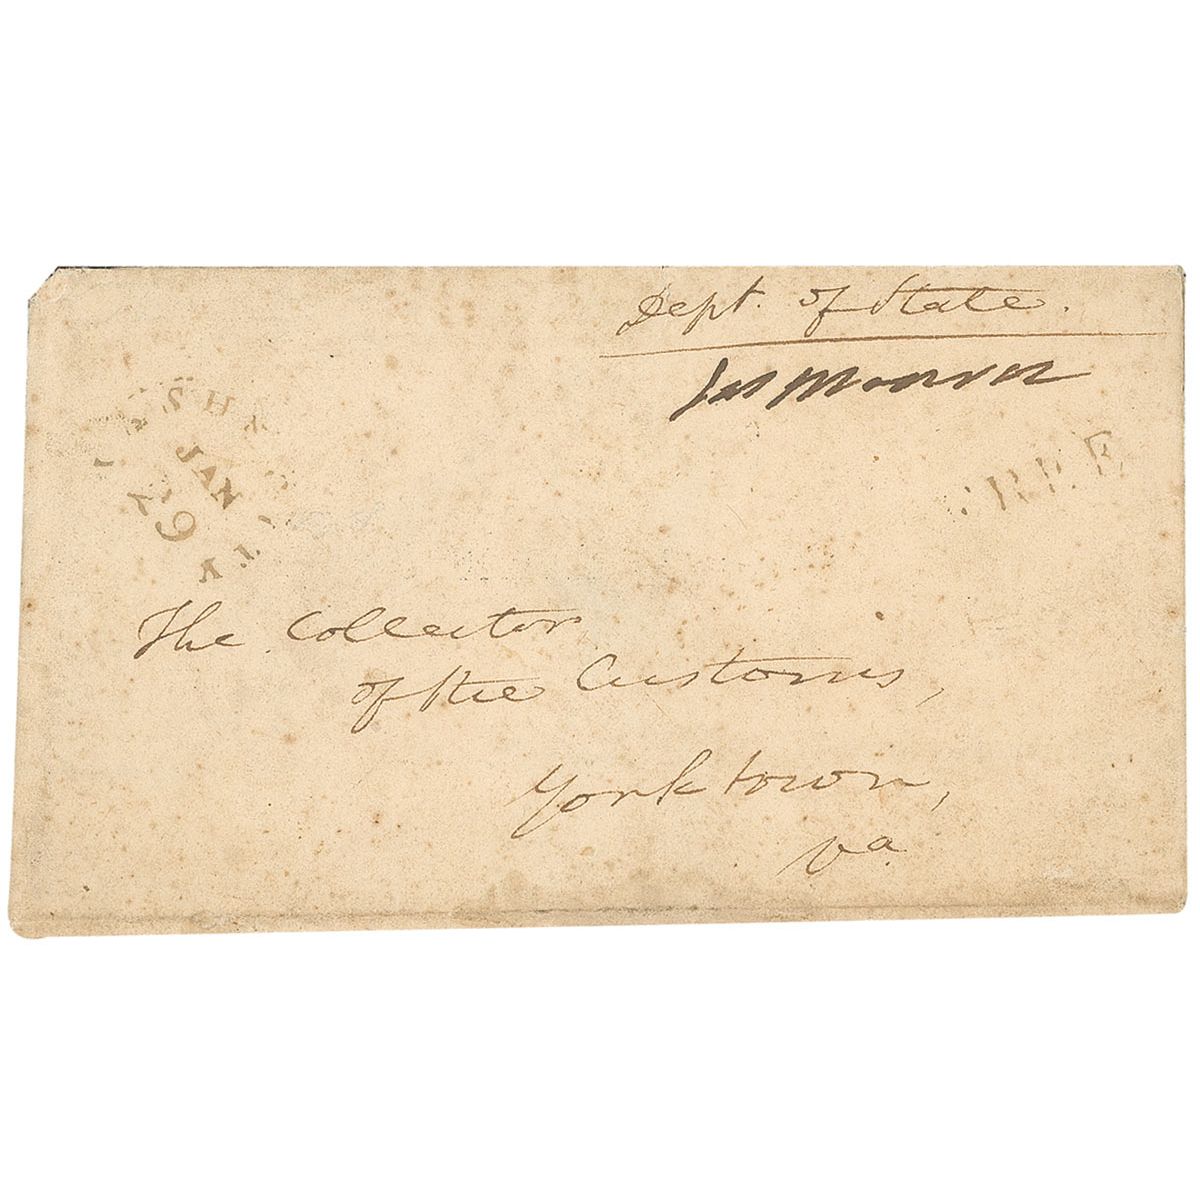 Dept. of State.
Jas Monroe
JAN
29
FREE
The Collector
of the Customs,
Yorktown,
Va